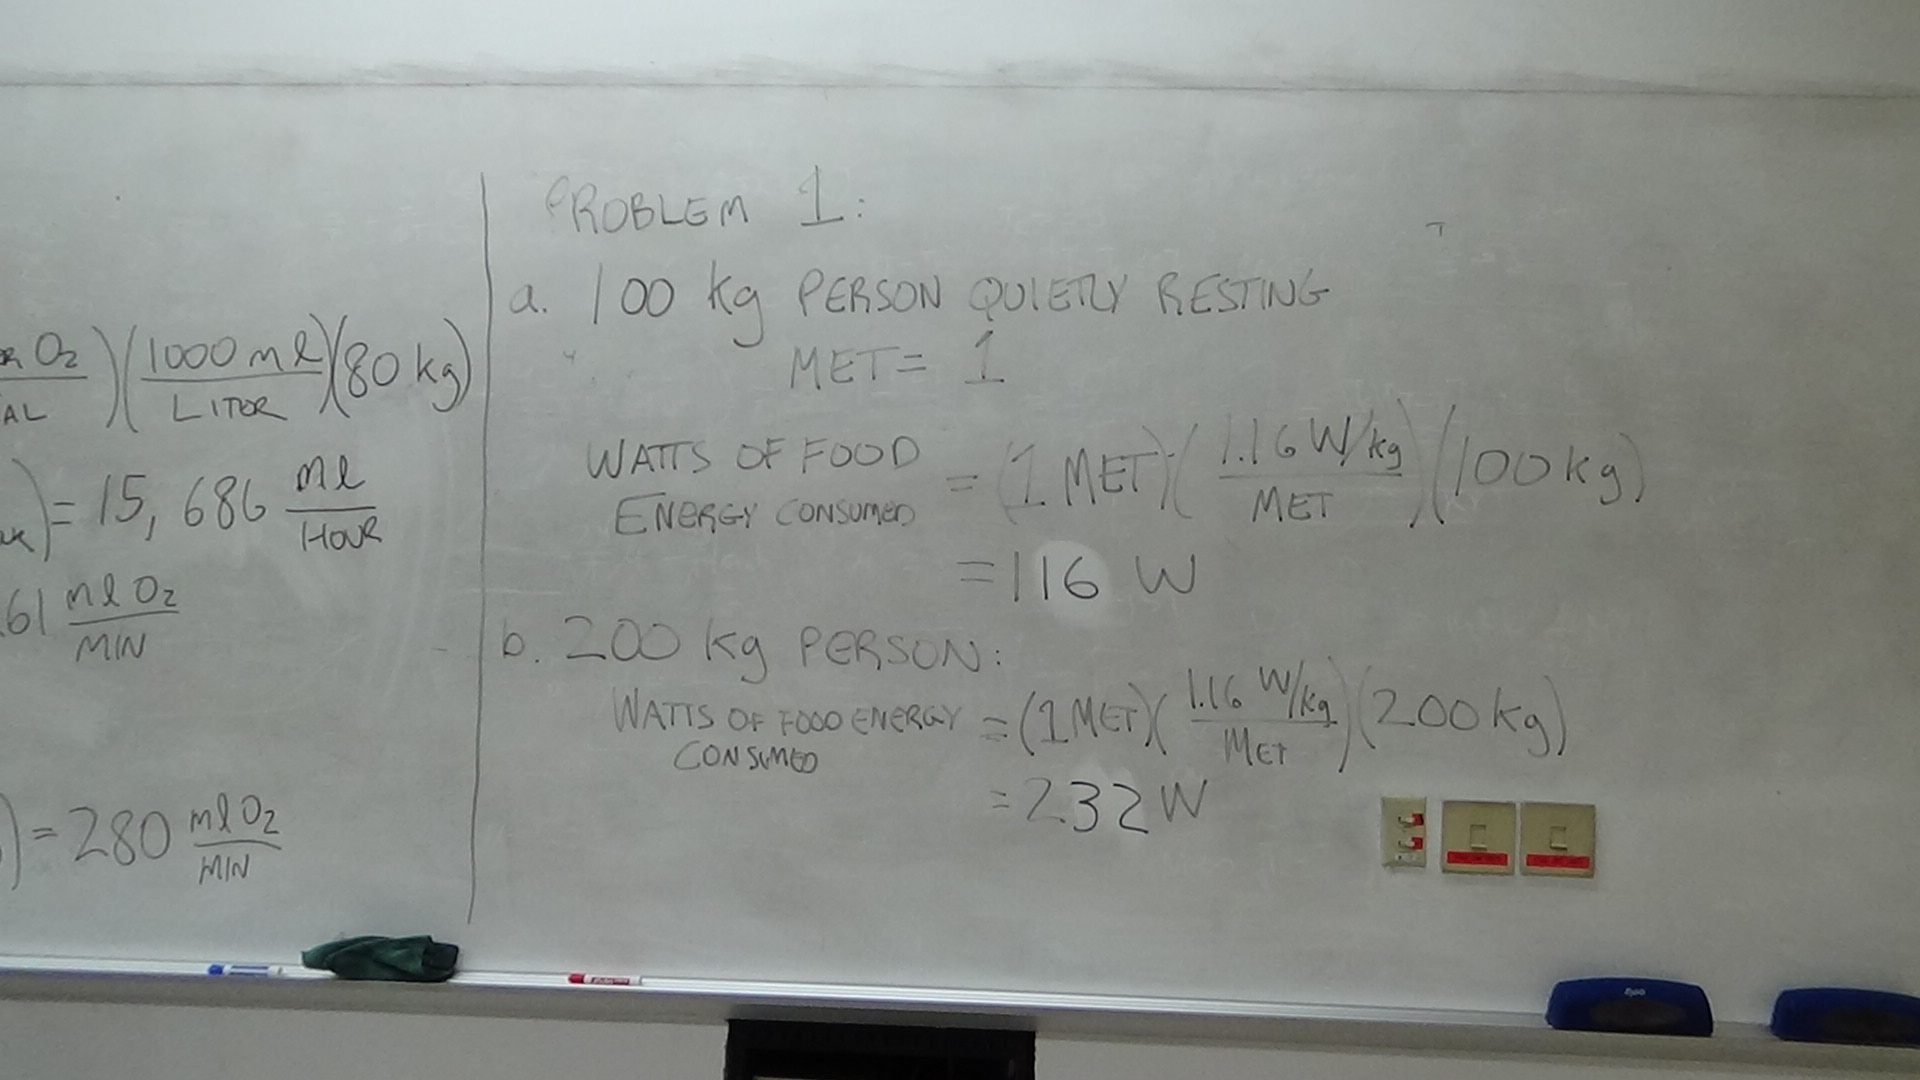 O₂ / AL )( 1000 ml / LITOR )(80 kg)
) = 15,686 ml / HOUR
.61 ml O₂ / MIN
) = 280 ml O₂ / MIN
PROBLEM 1:
a. 100 kg PERSON QUIETLY RESTING
MET = 1
WATTS OF FOOD
ENERGY CONSUMED = (1 MET)·( 1.16 W/kg / MET )(100 kg)
= 116 W
b. 200 kg PERSON:
WATTS OF FOOD ENERGY
CONSUMED = (1 MET)( 1.16 W/kg / MET )(200 kg)
= 232 W
Expo